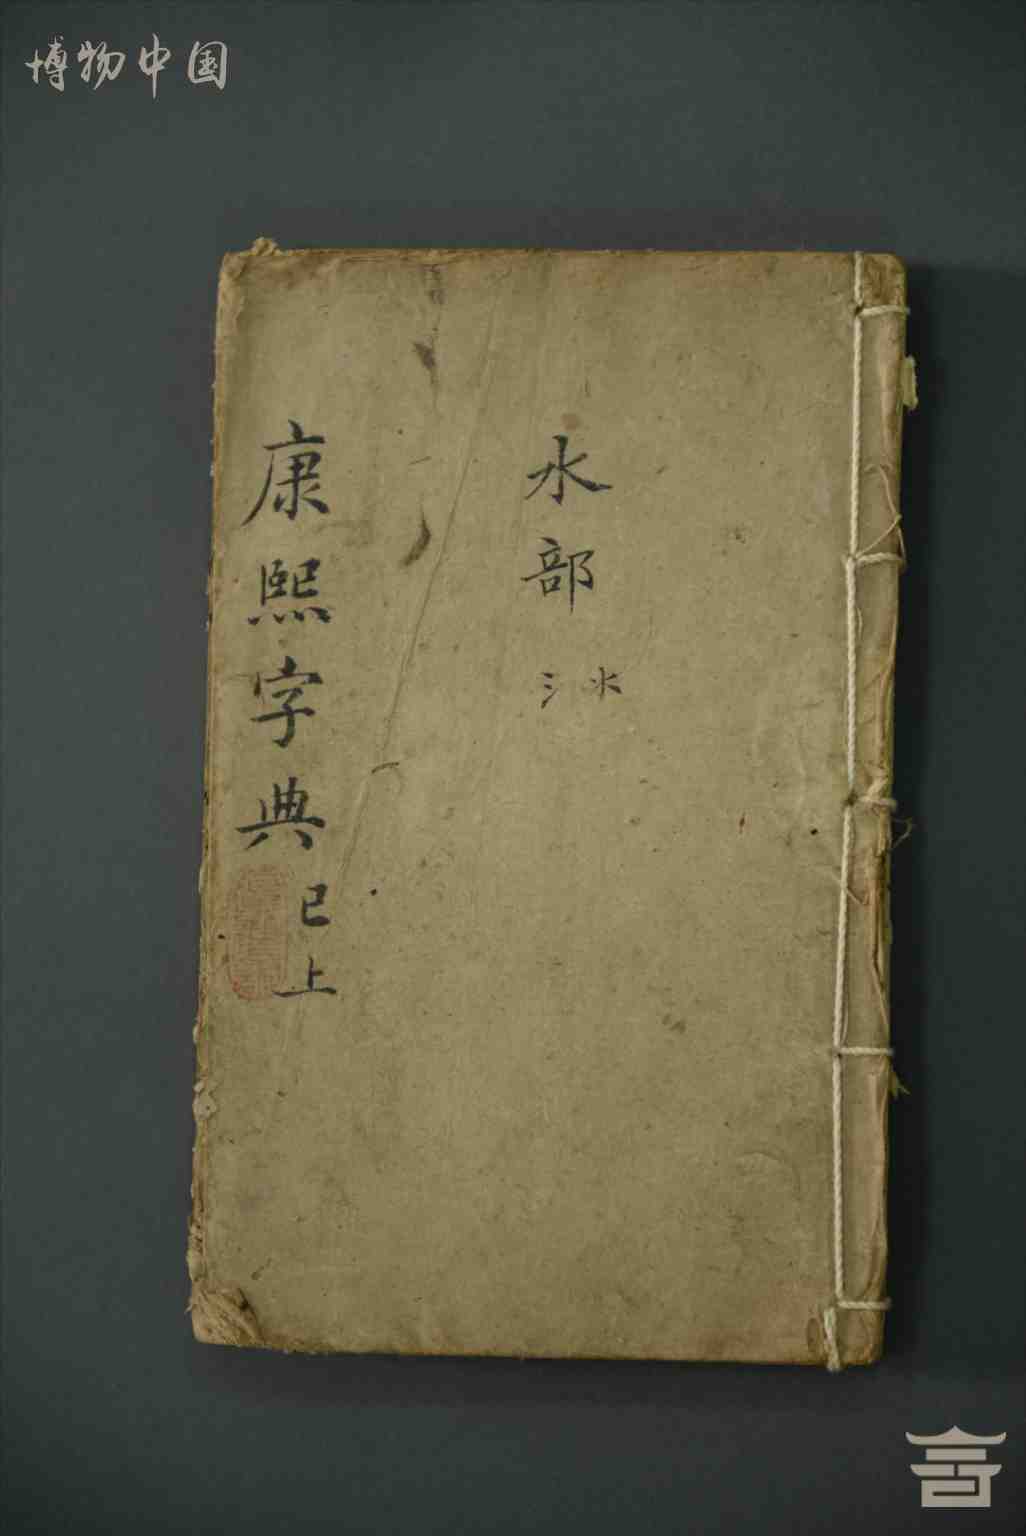 博物中国
水部
氵氺
康熙字典
巳上